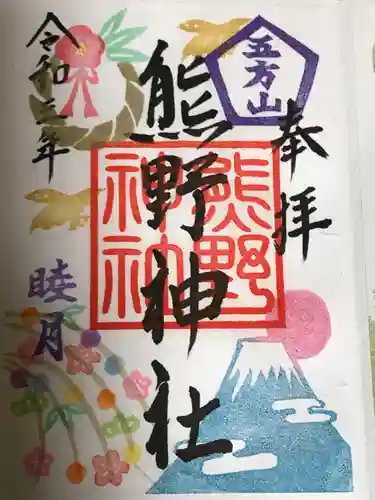 奉拝
五方山
熊野神社
熊野
神社
令和三年
睦月